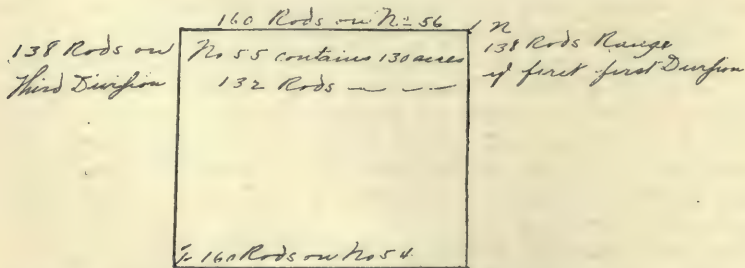 160 Rods on No 56
138 Rods on
Third Division
No 55 contains 130 acres
132 Rods — — —
N
138 Rods Range
of first first Division
160 Rods on No 54